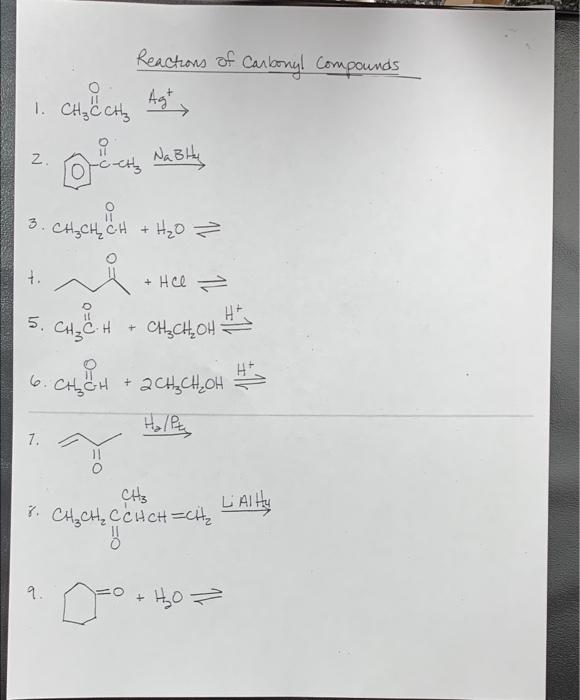 Reactions of Carbonyl Compounds
1. CH₃CCH₃ Ag⁺
O
2. C-CH₃ NaBH₄
O
3. CH₃CH₂CH + H₂O ⇌
O
4. O + HCl ⇌
5. CH₃C-H + CH₃CH₂OH ⇌ H⁺
O
6. CH₃CH + 2CH₃CH₂OH ⇌ H⁺
O
7. H₂/Pt
O
CH₃
8. CH₃CH₂CCHCH=CH₂ LiAlH₄
O
9. =O + H₂O ⇌